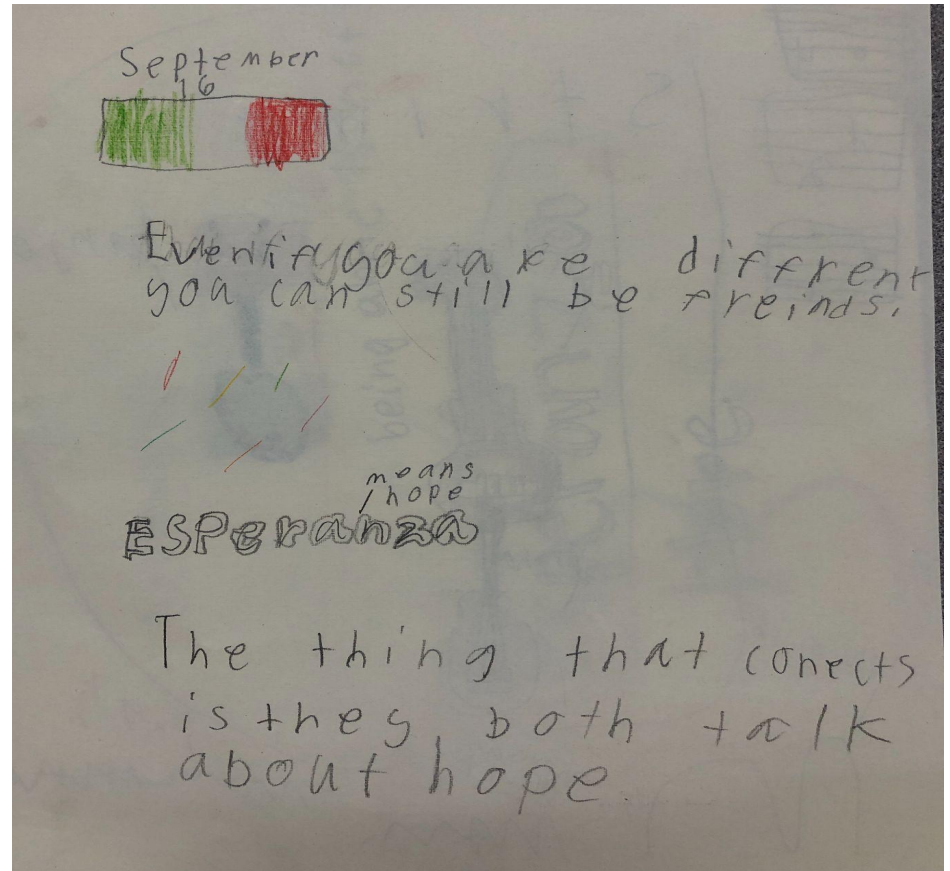 September
16
Even if you are diffrent
you can still be freinds.
means
hope
ESPeranza
The thing that conects
is they both talk
about hope.